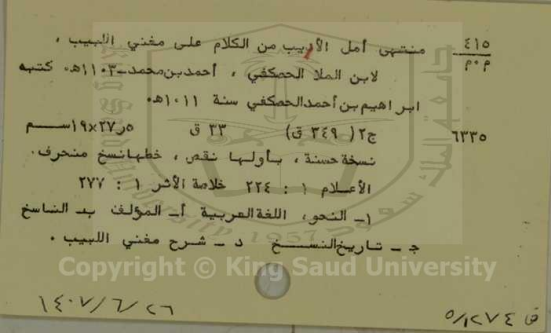 ٤١٥ منتهى أمل الأريب من الكلام على مغني اللبيب ،
م٠م لابن الملا الحصكفي ، أحمد بن محمد -١١٠٣هـ٠ كتبه
ابراهيم بن أحمد الحصكفي سنة ١٠١١هـ٠
٦٣٣٥ ج٢( ٣٤٩ ق) ٣٣ ق ٥ر٢٧×١٩سم
نسخة حسنة ، بأولها نقص ، خطها نسخ منحرف٠
الأعلام ١ : ٢٢٤ خلاصة الأثر ١ : ٢٧٧
١- النحو، اللغة العربية أ- المؤلف ب- الناسخ
ج - تاريخ النسخ د - شرح مغني اللبيب ٠
Copyright © King Saud University
١٤٠٧/٦/٢٦
ف ٥/١٢٧٤